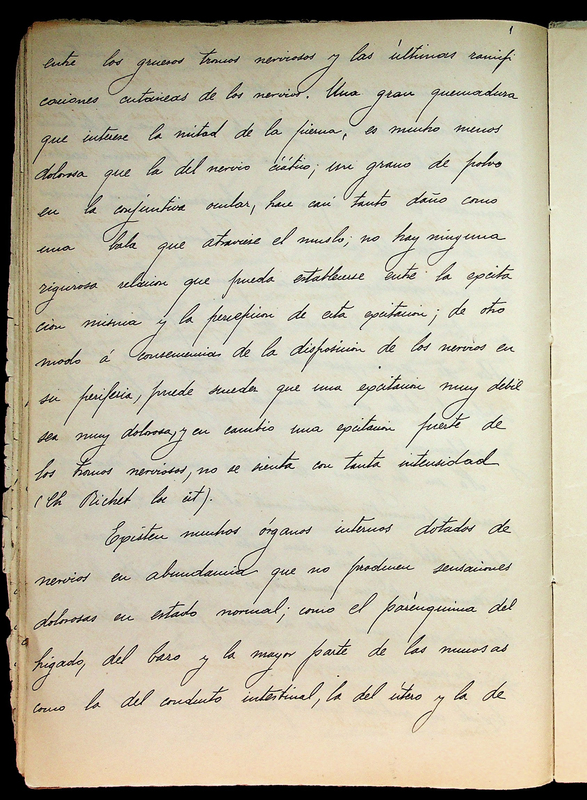 entre los gruesos troncos nerviosos y las últimas ramifi
caciones cutáneas de los nervios. Una gran quemadura
que interese la mitad de la pierna, es mucho menos
dolorosa que la del nervio ciático; un grano de polvo
en la conjuntiva ocular, hace casi tanto daño como
una bala que atraviese el muslo; no hay ninguna
rigurosa relacion que pueda establecerse entre la excita
cion misma y la percepcion de esta excitacion; de otro
modo á consecuencia de la disposicion de los nervios en
su periferia, puede suceder que una excitacion muy debil
sea muy dolorosa, y en cambio una excitacion fuerte de
los troncos nerviosos, no se sienta con tanta intensidad
(Ch Richet loc cit).
Existen muchos órganos internos dotados de
nervios en abundancia que no producen sensaciones
dolorosas en estado normal; como el parénquima del
higado, del bazo y la mayor parte de las mucosas
como la del conducto intestinal, la del útero y la de